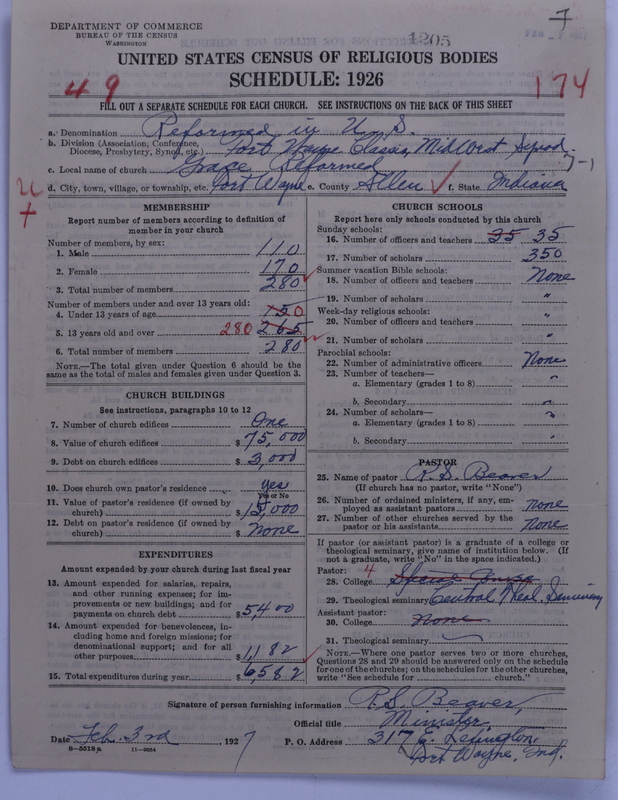 DEPARTMENT OF COMMERCE
BUREAU OF THE CENSUS
WASHINGTON
1205
7
UNITED STATES CENSUS OF RELIGIOUS BODIES
SCHEDULE: 1926
49
174
FILL OUT A SEPARATE SCHEDULE FOR EACH CHURCH. SEE INSTRUCTIONS ON THE BACK OF THIS SHEET
a. Denomination Reformed in U.S.
b. Division (Association, Conference, Diocese, Presbytery, Synod, etc.) Fort Wayne Classis, MidWest Synod
7-1
c. Local name of church Grace Reformed
d. City, town, village, or township, etc. Fort Wayne e. County Allen f. State Indiana
MEMBERSHIP
Report number of members according to definition of
member in your church
Number of members, by sex:
1. Male 110
2. Female 170
3. Total number of members 280
Number of members under and over 13 years old:
4. Under 13 years of age 150
5. 13 years old and over 280 265
6. Total number of members 280
NOTE.—The total given under Question 6 should be
same as the total of males and females given under Question 3.
CHURCH BUILDINGS
See instructions, paragraphs 10 to 12
7. Number of church edifices One
8. Value of church edifices $75,000
9. Debt on church edifices $3,000
10. Does church own pastor's residence yes
Yes or No
11. Value of pastor's residence (if owned by
church) $15,000
12. Debt on pastor's residence (if owned by
church) $None
EXPENDITURES
Amount expended by your church during last fiscal year
13. Amount expended for salaries, repairs,
and other running expenses; for im-
provements or new buildings; and for
payments on church debt $5,400
14. Amount expended for benevolences, in-
cluding home and foreign missions; for
denominational support; and for all
other purposes $1,182
15. Total expenditures during year $6,582
CHURCH SCHOOLS
Report here only schools conducted by this church
Sunday schools:
16. Number of officers and teachers 35 35
17. Number of scholars 350
Summer vacation Bible schools:
18. Number of officers and teachers None
19. Number of scholars "
Week-day religious schools:
20. Number of officers and teachers "
21. Number of scholars "
Parochial schools:
22. Number of administrative officers None
23. Number of teachers—
a. Elementary (grades 1 to 8) "
b. Secondary "
24. Number of scholars—
a. Elementary (grades 1 to 8) "
b. Secondary "
PASTOR
25. Name of pastor R. S. Beaver
(If church has no pastor, write "None")
26. Number of ordained ministers, if any, em-
ployed as assistant pastors none
27. Number of other churches served by the
pastor or his assistants none
If pastor (or assistant pastor) is a graduate of a college or
theological seminary, give name of institution below. (If
not a graduate, write "No" in the space indicated.)
Pastor: 4
28. College
29. Theological seminary Central Theol. Seminary
Assistant pastor:
30. College None
31. Theological seminary
NOTE.—Where one pastor serves two or more churches,
Questions 28 and 29 should be answered only on the schedule
for one of the churches; on the schedules for the other churches,
write "See schedule for church."
Signature of person furnishing information R. S. Beaver,
Official title Minister,
Date Feb. 3rd, 1927 P. O. Address 317 E. Lexington,
Fort Wayne, Ind.
8-5518a 11-9034